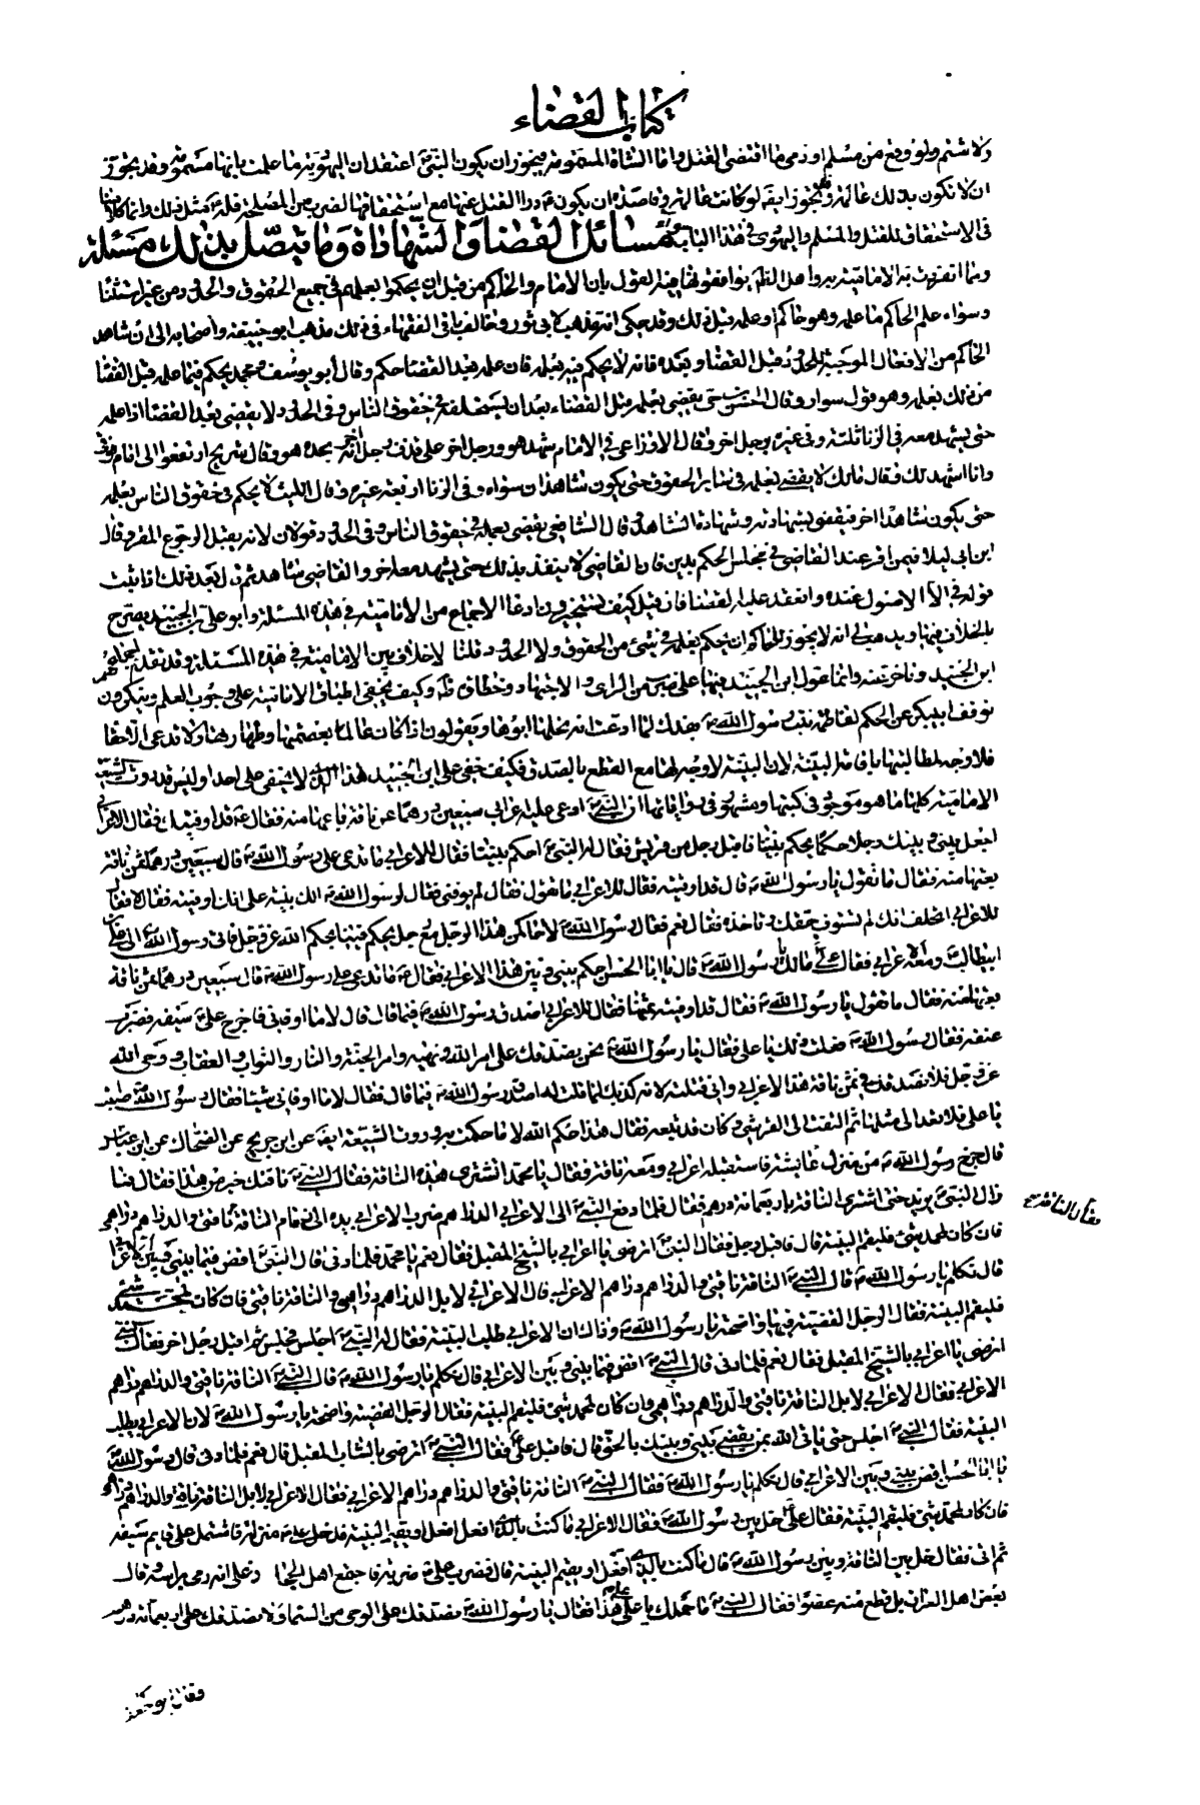 كتاب القضاء
ولا شتم ولو وقع من مسلم او ذمى ما اقتضى القتل واما الشاة المسمومة فيجوز ان يكون النبى اعتقد ان اليهودية ما علمت بانها مسمومة وقد يجوز
ان لا تكون بذلك عالمة ويجوز ايضا لو كانت عالمة وقاصدة ان يكون درأ القتل عنها مع استحقاقها لضرب من المصلحة فله مثل ذلك وانما كلامنا
فى الاستحقاق للقتل والمسلم واليهودى فى هذا الباب مسائل القضا والشهاداة وما يتصل بذلك مسئلة
ومما انفردت به الامامية واهل الظاهر يوافقونها فيه القول بان الامام والحاكم من قبله ان يحكموا بعلمهم فى جميع الحقوق والحدود من غير استثنا
وسواء علم الحاكم ما علمه وهو حاكم او علمه قبل ذلك وقد حكى انه مذهب لابى ثور وخالف باقى الفقهاء فى ذلك فذهب ابو حنيفة واصحابه الى ان شاهد
الحاكم من الافعال الموجبة للحدود قبل القضا وبعده فانه لا يحكم فيه بعلمه فان علمه بعد القضا حكم وقال أبو يوسف ومحمد يحكم فيما علمه قبل القضا
من ذلك بعلمه وهو قول سوار وقال الحسن بن حى يقضى بعلمه قبل القضاء بعد ان يستحلفه فى حقوق الناس وفى الحدود لا يقضى بعد القضا اذا علمه
حتى يشهد معه فى الزنا ثلثة وفى غيره رجل اخر وقال الاوزاعى فى الامام شهد هو ورجل اخر على قذف رجل انه يحده هو وقال شريح ارتفعوا الى امام فوقى
وانا اشهد لك وقال مالك لا يقضى بعلمه فى سائر الحقوق حتى يكون شاهدان سواه وفى الزنا اربعة غيره وقال الليث لا يحكم فى حقوق الناس بعلمه
حتى يكون شاهدا اخر فيقضى بشهادته وشهادة الشاهد وقال الشافعى يقضى بعلمه فى حقوق الناس وفى الحدود قولان لانه يقبل الرجوع المقر وقال
ابن ابى ليلى فيمن اقر عند القاضى فى مجلس الحكم بدين فان القاضى لا ينفذ ذلك حتى يشهد معه اخر والقاضى شاهد ثم قال بعد ذلك اذا ثبت
قوله فى الاصول عنده وانعقد عليه القضا فان قيل كيف تستجيزون ادعا الاجماع من الامامية فى هذه المسئلة وابو على بن الجنيد يصرح
بالخلاف فيها ويذهب الى انه لا يجوز للحاكم ان يحكم بعلمه فى شئ من الحقوق ولا الحدود قلنا لا خلاف بين الامامية فى هذه المسئلة وقد تقدم اجماعهم
ابن الجنيد وتاخر عنه وانما عول ابن الجنيد فيها على ضرب من الرأى والاجتهاد وخطاؤه ظاهر وكيف يخفى اطباق الامامية على وجوب العلم وينكرون
توقف ابى بكر عن الحكم لفاطمة بنت رسول الله بفدك لما ادعت انه نحلها ابوها ويقولون اذا كان عالما بعصمتها وطهارتها وانها لا تدعى الا حقا
فلا وجه لمطالبتها باقامة البينة لان البينة لا وجه لها مع القطع بالصدق فكيف خفى على ابن الجنيد هذا الذى لا يخفى على احد او ليس قد روت الشيعة
الامامية كلها ما هو موجود فى كتبها ومشهور فى رواياتها ان النبى ادعى عليه اعرابى سبعين درهما ثمن ناقة باعها منه فقال ع قد اوفيتك فقال الاعرابى
اجعل بينى وبينك رجلا حكما يحكم بيننا فاقبل رجل من قريش فقال له النبى احكم بيننا فقال للاعرابى ما تدعى على رسول الله قال سبعين درهما ثمن ناقة
بعتها منه فقال ما تقول يا رسول الله قال قد اوفيته فقال للاعرابى ما تقول فقال لم يوفنى فقال لرسول الله الك بينة على انك اوفيته فقال لا فقال
للاعرابى اتحلف انك لم تستوف حقك وتاخذه فقال نعم فقال رسول الله لاتحاكمن هذا الرجل مع رجل يحكم فينا بحكم الله عز وجل فاتى رسول الله الى على بن
ابيطالب ومعه الاعرابى فقال على مالك يا رسول الله قال يا ابا الحسن احكم بينى وبين هذا الاعرابى فقال ع ما تدعى على رسول الله قال سبعين درهما ثمن ناقة
بعتها منه فقال ما تقول يا رسول الله فقال قد اوفيته ثمنها فقال للاعرابى اصدق رسول الله فيما قال قال لا ما اوفانى فاخرج على سيفه فضرب
عنقه فقال رسول الله ص فعلت ذلك يا على فقال يا رسول الله نحن نصدقك على امر الله ونهيه وامر الجنة والنار والثواب والعقاب ووحى الله
عز وجل فلا نصدقك فى ثمن ناقة هذا الاعرابى وانى قتلته لانه كذبك لما قلت له اصدق رسول الله فيما قال فقال لا ما اوفانى شيئا فقال رسول الله اصبت
يا على فلا تعد الى مثلها ثم التفت الى القرشى وكان قد تبعه فقال هذا حكم الله لا ما حكمت به وروت الشيعة ايضا عن ابن جريج عن الضحاك عن ابن عباس
قال خرج رسول الله من منزل عايشة فاستقبله اعرابى ومعه ناقة فقال يا محمد اتشترى هذه الناقة فقال النبى
بل ناقتك خير من هذا فقال فما
زال النبى يزيد حتى اشترى الناقة باربعمائة درهم فقال فلما دفع النبى الى الاعرابى الدراهم ضرب الاعرابى يده الى زمام الناقة فقال الناقة ناقتى والدراهم دراهمى
فان كان لمحمد شئ فليقم البينة قال فاقبل رجل فقال النبى اترضى يا اعرابى بالشيخ المقبل فقال نعم يا محمد فلما دنى قال النبى اقض فيما بينى وبين الاعرابى
قال تكلم يا رسول الله قال النبى الناقة ناقتى والدراهم دراهم الاعرابى قال الاعرابى لا بل الدراهم دراهمى والناقة ناقتى فان كان لمحمد شئ
فليقم البينة فقال الرجل القضية فيها واضحة يا رسول الله وذلك ان الاعرابى طلب البينة فقال له النبى اجلس فجلس ثم اقبل رجل اخر فقال النبى
اترضى يا اعرابى بالشيخ المقبل فقال نعم فلما دنى قال النبى اقض فيما بينى وبين الاعرابى قال تكلم يا رسول الله قال النبى الناقة ناقتى والدراهم دراهم
الاعرابى فقال الاعرابى لا بل الناقة ناقتى والدراهم دراهمى فان كان لمحمد شئ فليقم البينة فقال الرجل القضية واضحة يا رسول الله لان الاعرابى يطلب
البينة فقال النبى اجلس حتى ياتى الله بمن يقضى بينى وبينك بالحق قال فاقبل على فقال النبى اترضى بالشاب المقبل قال نعم فلما دنى قال رسول الله
يا ابا الحسن اقض بينى وبين الاعرابى قال تكلم يا رسول الله فقال النبى الناقة ناقتى والدراهم دراهم الاعرابى فقال الاعرابى لا بل الناقة ناقتى والدراهم دراهمى
فان كان لمحمد شئ فليقم البينة فقال على خل بين رسول الله فقال الاعرابى ما كنت بالذى افعل او يقيم البينة فدخل على ع منزله فاشتمل على قايم سيفه
ثم اتى فقال خل بين الناقة وبين رسول الله قال ما كنت بالذى افعل او يقيم البينة قال فضربه على ع ضربة فاجمع اهل الحجاز على انه رمى براسه وقال
بعض اهل العراق بل قطع منه عضوا فقال النبى ما حملك يا على على هذا فقال يا رسول الله نصدقك على الوحى من السماء ولا نصدقك على اربعمائة درهم